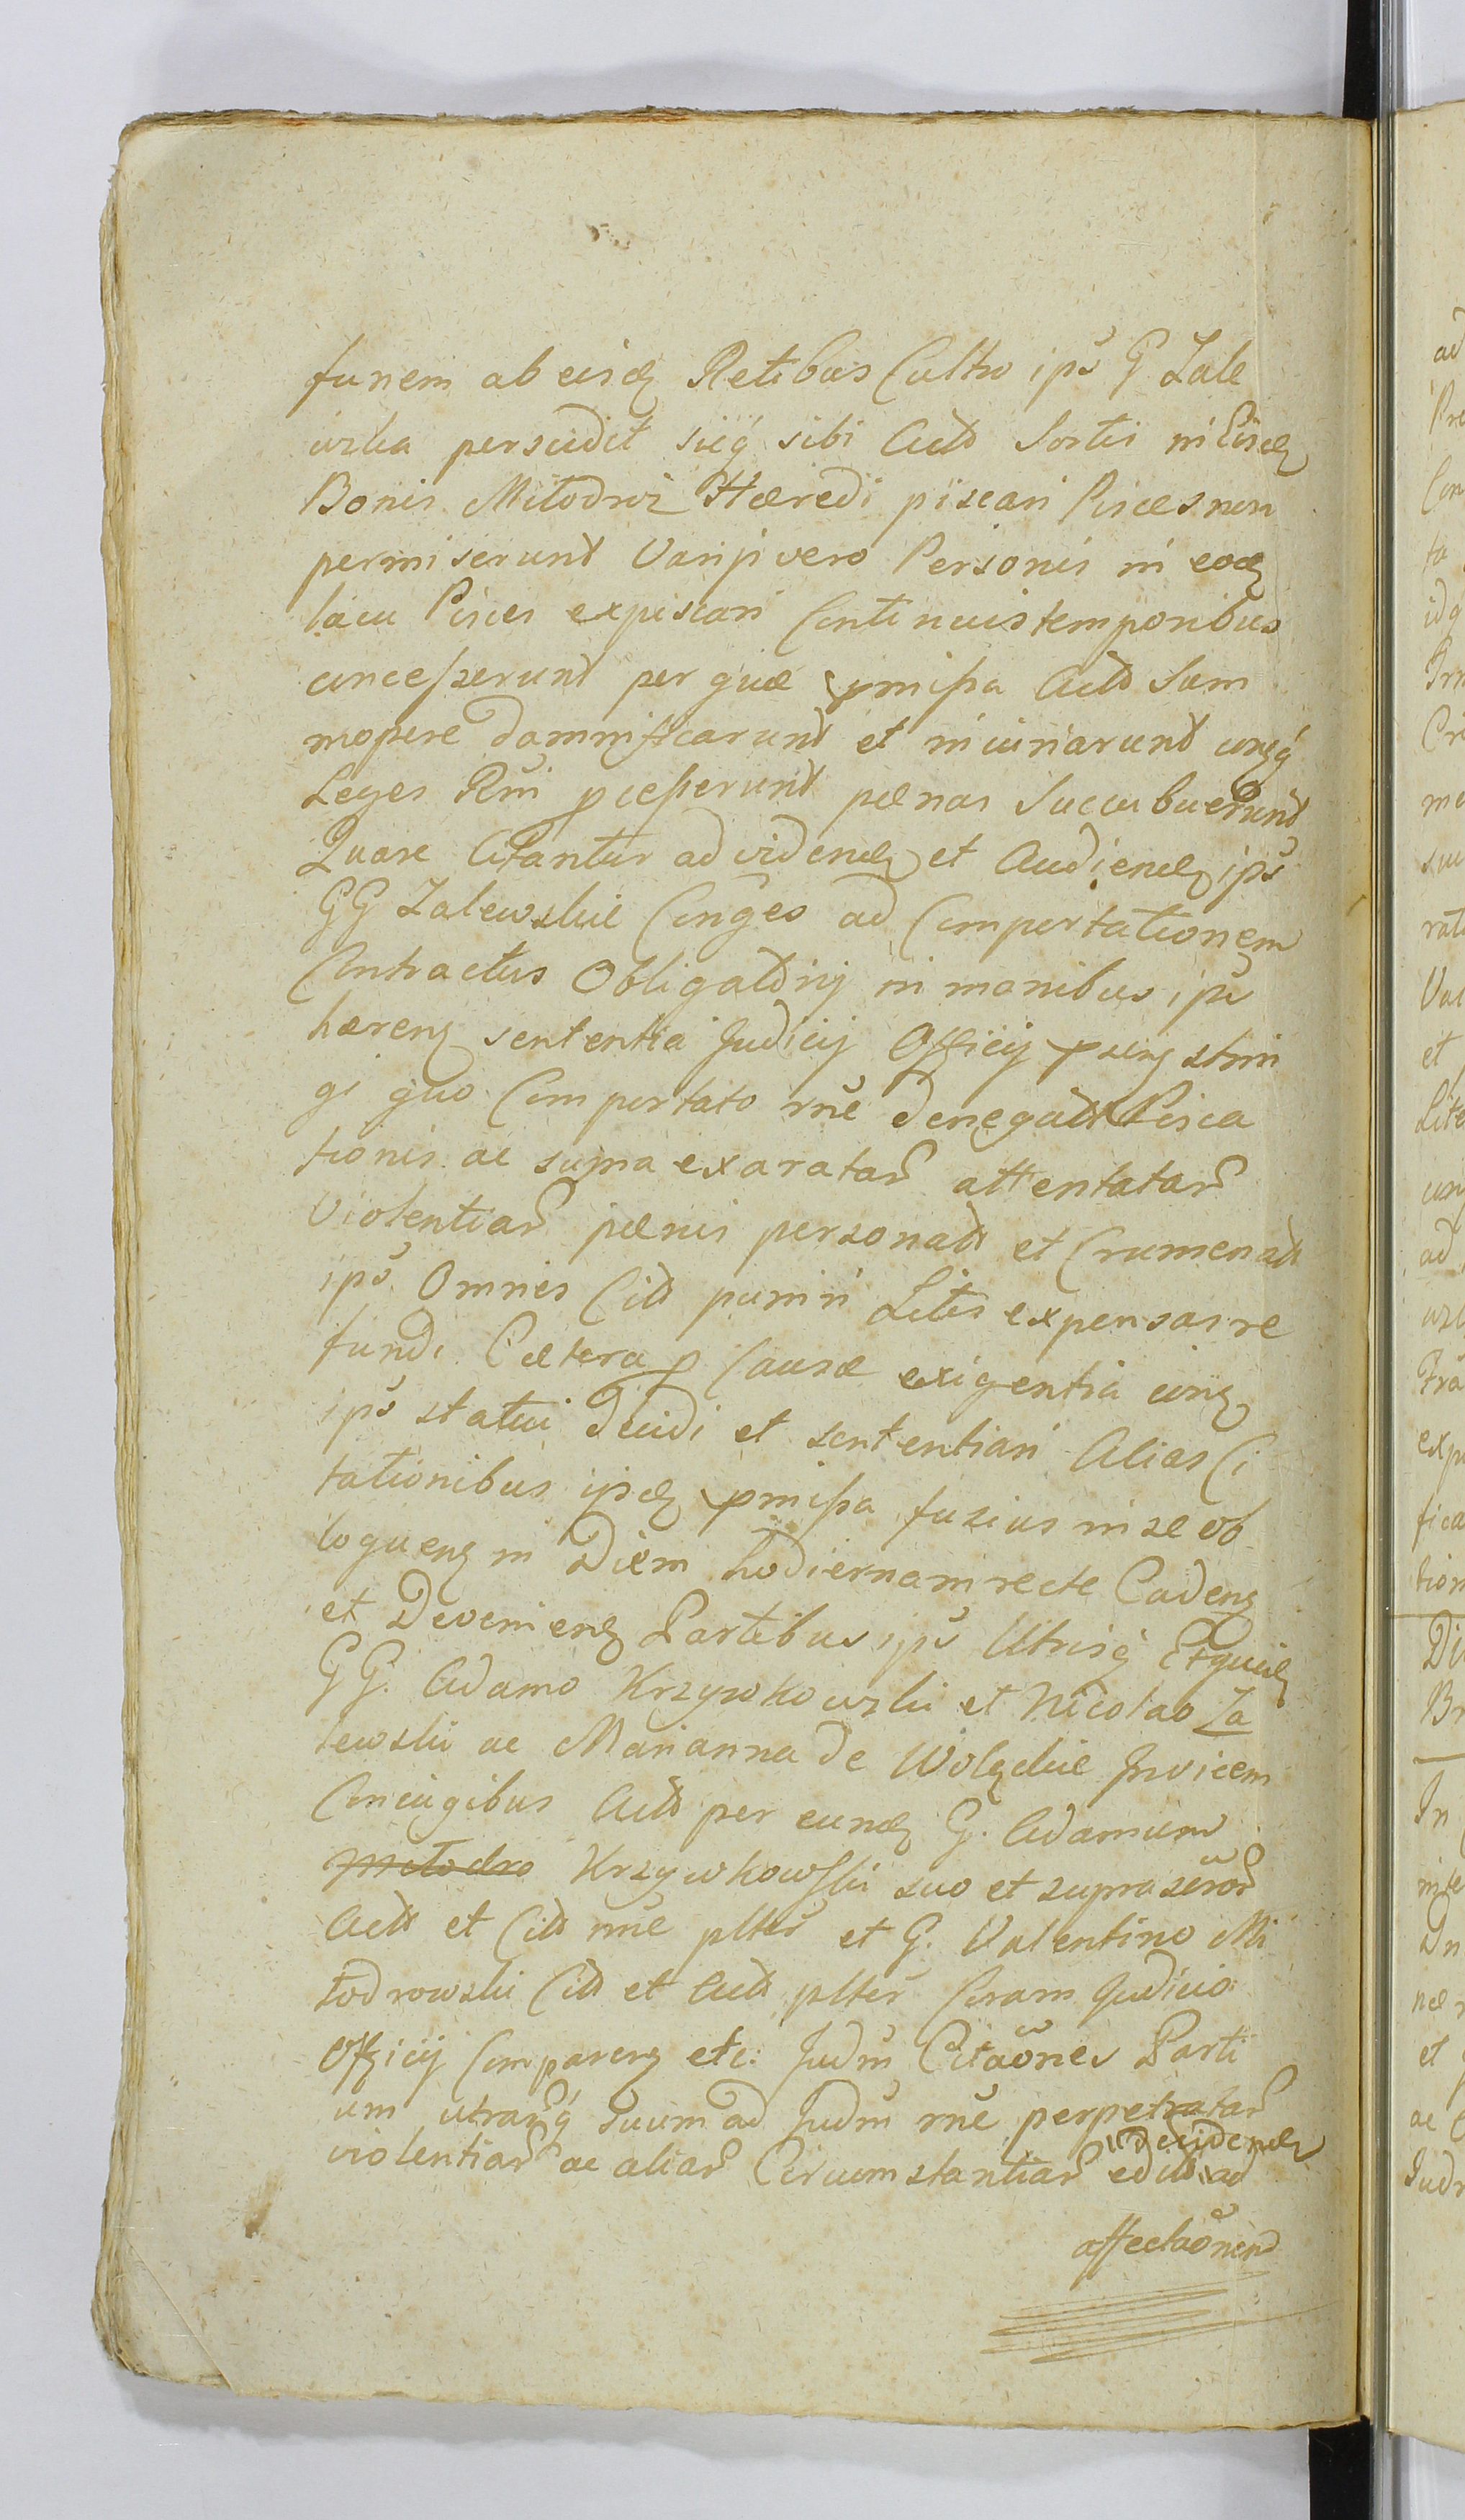 funem ab eisdē Retibus Cultro ips̃ G Zale
wska perscidit siq́ sibi Actō Sortis in Eisdē
Bonis Mitodroz Hæredi piscari Pisces non
permiserunt Varijs vero Personis in eodē
lacu Pisces expiscari Continuis temporibus
concesserunt per quæ pmissa Actō Sum
mopere damnificarunt et iniuriarunt conqꝫ
Leges Rni pcesserunt pœnas Succubuerunt
Quare Citantur ad videndꝫ et Audiendꝫ ips̃
GG Zalewskie Conges ad Comportationem
Contractus Obligatorij in manibus ips̃
hærenꝫ sententia Judicij Officij prænꝫ strin
gi quo Comportato rñe denegatæ Pisca
tionis ac supra exaratar̃ attentatar̃
Violentiar̃ pœnis personatł et Crumenatł
ips̃ Omnes Cittł puniri Litis expensas re
fundi Cætera p Causæ exigentia conꝫ
ips̃ statui decidi et sententiari Alias Ci
tationibus ipsꝫ pmissa fusius in se ob
loquenꝫ in Diem hodiernam recte Cadenꝫ
et Devenienꝫ Partibus ips̃ Utrisq́ Et quidꝫ
GG. Adamo Krzywkowski et Nicolao Za
lewski ac Marianna de Wolskie Invicem
Coniugibus Actł per eundꝫ G. Adamum
Mitodro Krzywkowski suo et supra scror̃
Actł et Citł nñe plter̃ et G. Valentino Mi
todrowski Citł et Actł plter̃ Coram Judicio
Officij Comparenꝫ etc: Judm̃ Citaõnes Parti
um utrarq́ suum ad Judm̃ rñe perpetratar̃
violentiar̃ ac aliar̃ Circumstantiar̃ editł ad decidendꝫ
affectaõnem